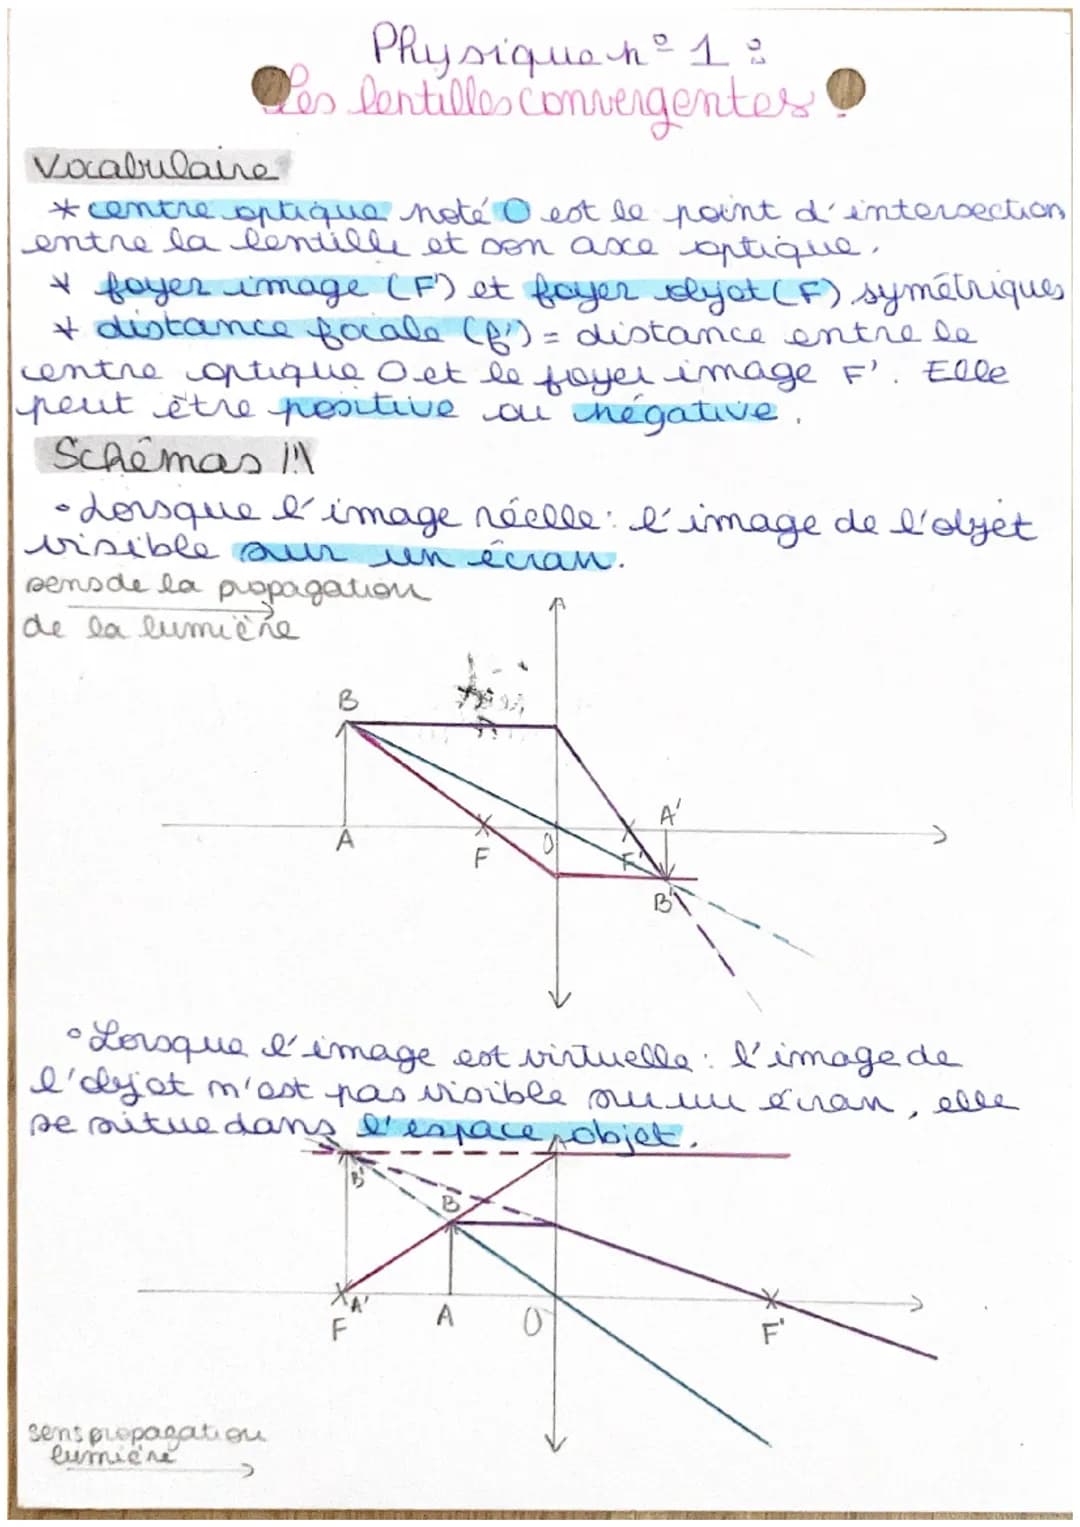 Physique n° 1 :
Les lentilles convergentes !
Vocabulaire
* centre optique noté O est le point d'intersection
entre la lentille et son axe optique.
* foyer image (F') et foyer objet (F) symétriques
* distance focale (f') = distance entre le
centre optique O et le foyer image F'. Elle
peut être positive ou négative.
Schémas !!\
• Lorsque l'image réelle : l'image de l'objet
visible sur un écran.
sens de la propagation
de la lumière
B
A'
A
F
O
F'
B'
• Lorsque l'image est virtuelle : l'image de
l'objet n'est pas visible sur un écran, elle
se situe dans l'espace objet.
B'
B
A'
F
A
O
F'
sens propagation
lumière